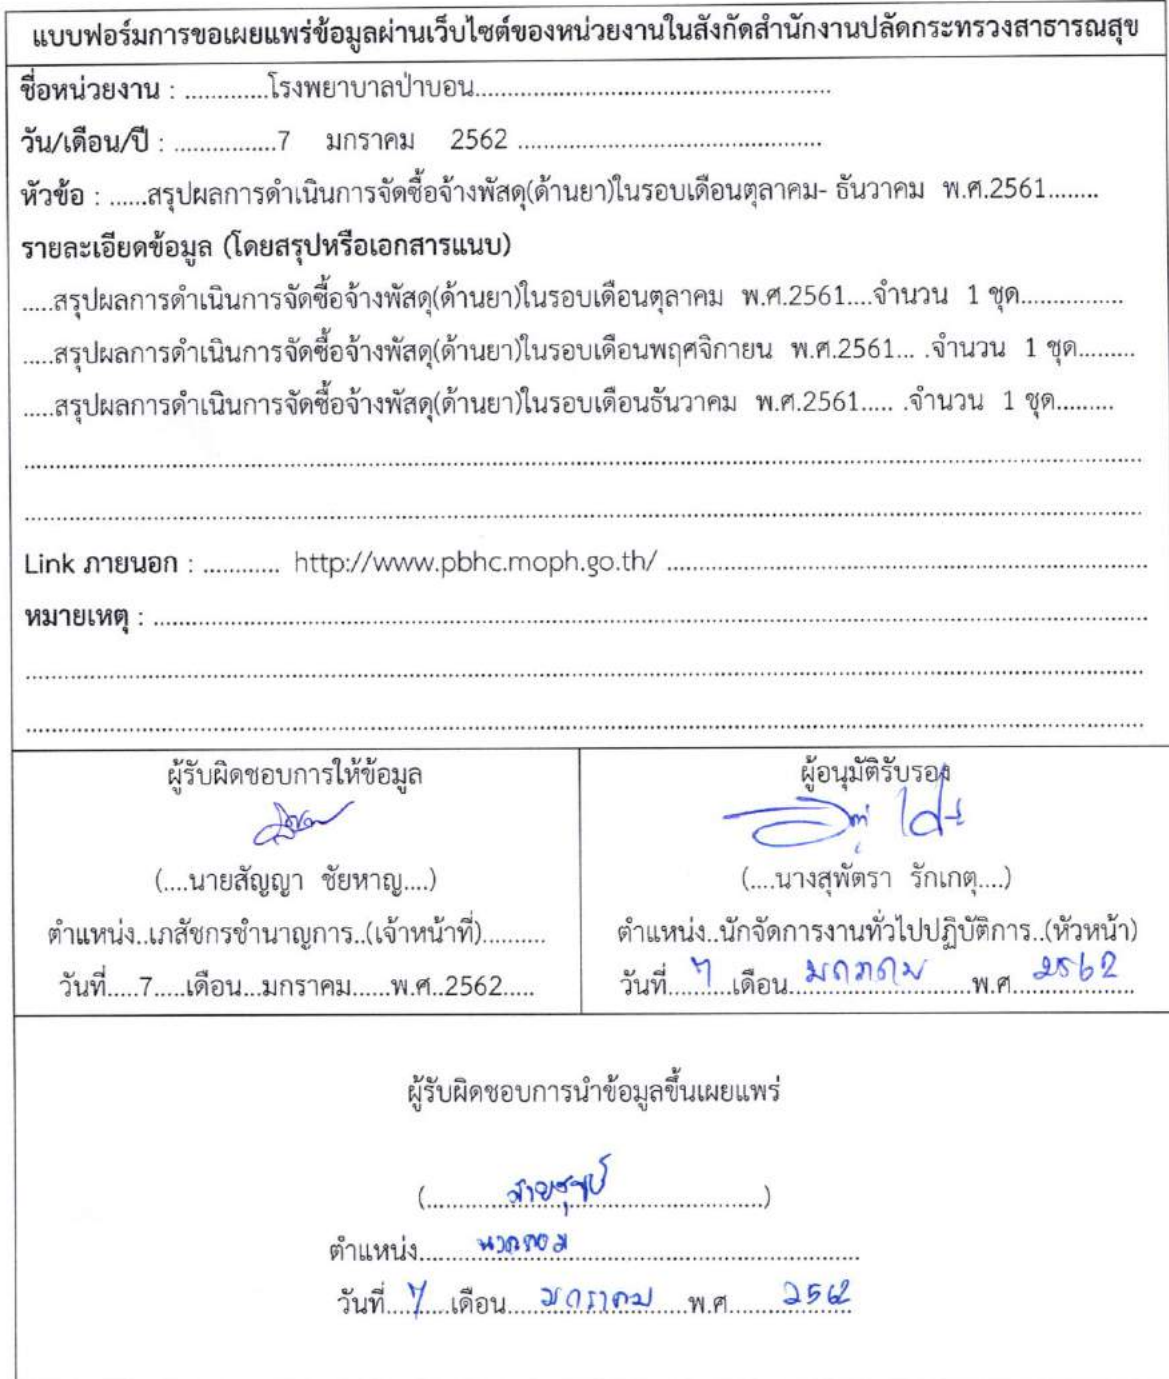 แบบฟอร์มการขอเผยแพร่ข้อมูลผ่านเว็บไซต์ของหน่วยงานในสังกัดสำนักงานปลัดกระทรวงสาธารณสุข
ชื่อหน่วยงาน : .............โรงพยาบาลป่าบอน......................................................
วัน/เดือน/ปี : ................7 มกราคม 2562 ...............................................
หัวข้อ : ......สรุปผลการดำเนินการจัดซื้อจ้างพัสดุ(ด้านยา)ในรอบเดือนตุลาคม- ธันวาคม พ.ศ.2561........
รายละเอียดข้อมูล (โดยสรุปหรือเอกสารแนบ)
.....สรุปผลการดำเนินการจัดซื้อจ้างพัสดุ(ด้านยา)ในรอบเดือนตุลาคม พ.ศ.2561....จำนวน 1 ชุด................
.....สรุปผลการดำเนินการจัดซื้อจ้างพัสดุ(ด้านยา)ในรอบเดือนพฤศจิกายน พ.ศ.2561... .จำนวน 1 ชุด.........
.....สรุปผลการดำเนินการจัดซื้อจ้างพัสดุ(ด้านยา)ในรอบเดือนธันวาคม พ.ศ.2561..... .จำนวน 1 ชุด.........
Link ภายนอก : ............ http://www.pbhc.moph.go.th/ ..........................................................................
หมายเหตุ : ..........................................................................
ผู้รับผิดชอบการให้ข้อมูล
(....นายสัญญา ชัยหาญ....)
ตำแหน่ง..เภสัชกรชำนาญการ..(เจ้าหน้าที่)..........
วันที่.....7.....เดือน...มกราคม......พ.ศ..2562.....
ผู้อนุมัติรับรอง
(....นางสุพัตรา รักเกตุ....)
ตำแหน่ง..นักจัดการงานทั่วไปปฏิบัติการ..(หัวหน้า)
วันที่....7....เดือน....มกราคม....พ.ศ....2562....
ผู้รับผิดชอบการนำข้อมูลขึ้นเผยแพร่
(....................................................)
ตำแหน่ง..........................................................
วันที่....7....เดือน....มกราคม....พ.ศ....2562